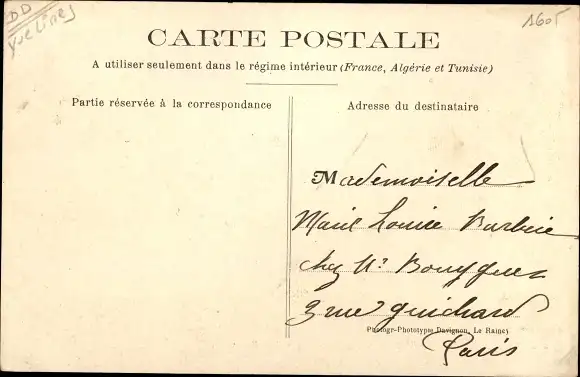 DD
Yvelines
1605
CARTE POSTALE
A utiliser seulement dans le régime intérieur (France, Algérie et Tunisie)
Partie réservée à la correspondance
Adresse du destinataire
Mademoiselle
Marie Louise Barbie
chez Mr Bouygues
3 rue Guichard
Photogr-Phototypie Davignon, Le Raincy
Paris